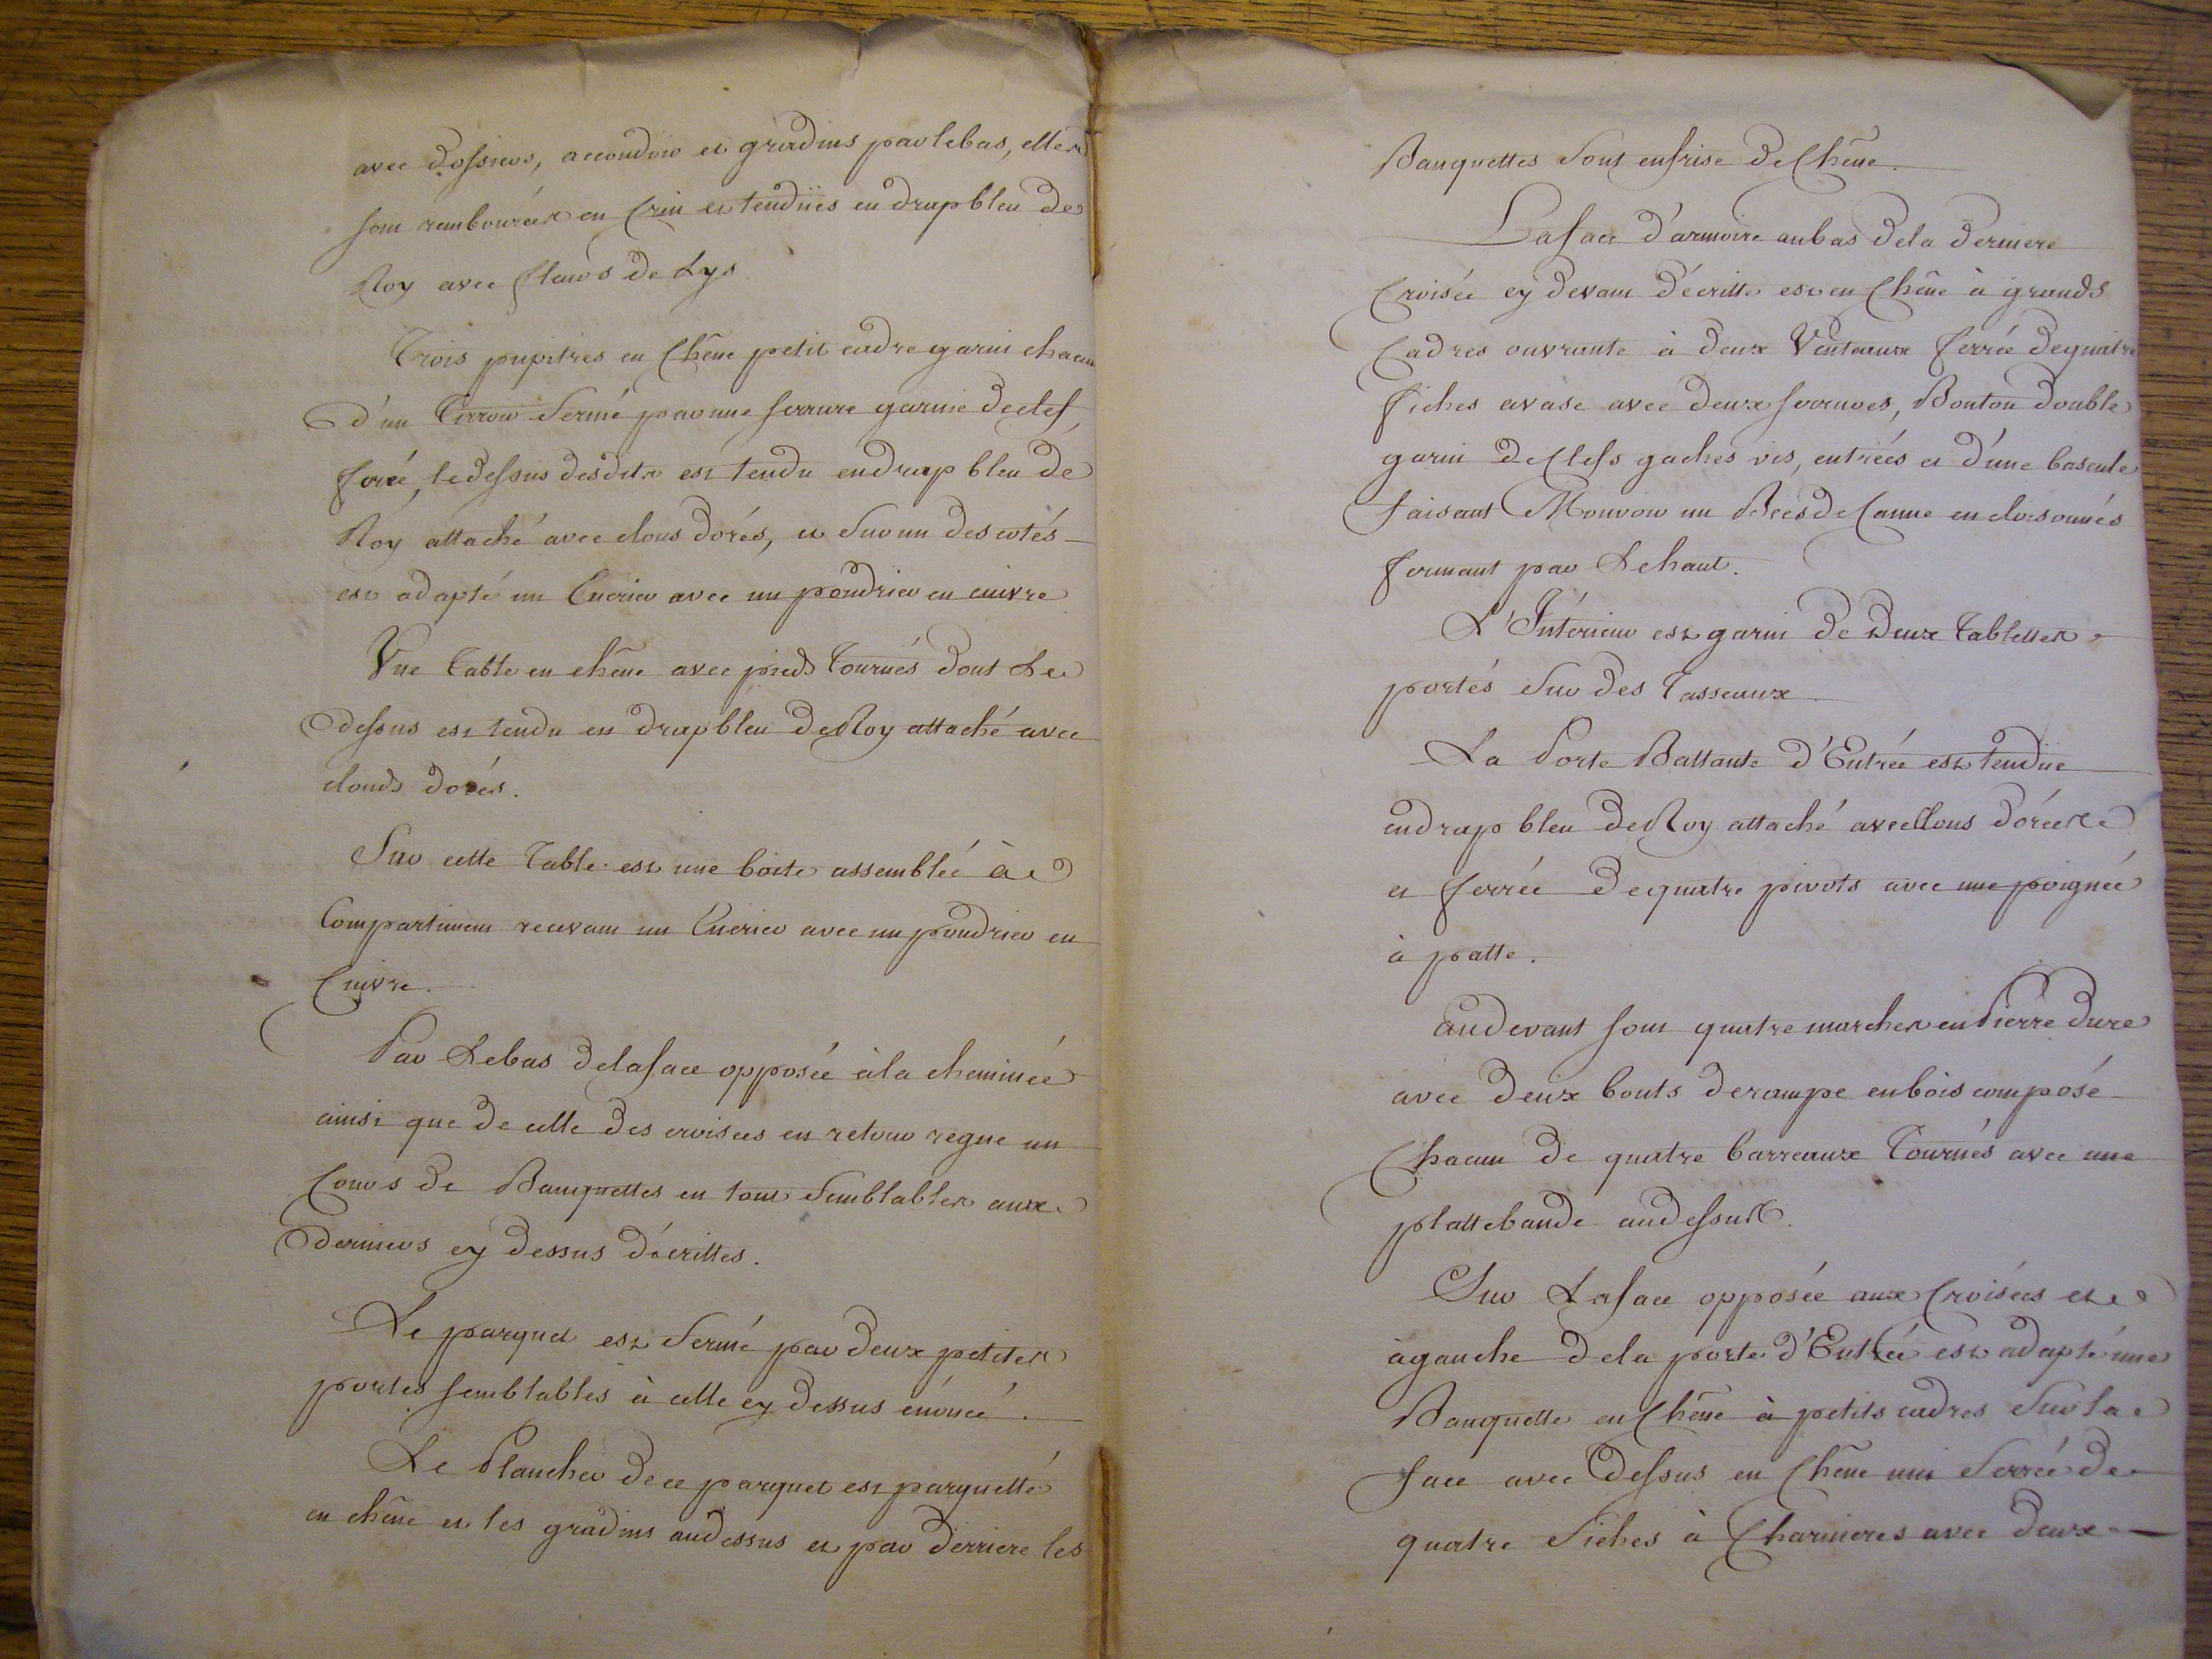 avec dossiers, accoudoir et gradins par lebas, elles
sont rembourées en Crin et tendües en drap bleu de
Roy avec fleurs de Lys
Trois pupitres en Chêne petit cadre garni chacun
d'un Tirroir fermé par une serrure garnie declef
forée, le dessus desdits est tendu endrap bleu de
Roy attaché avec clous dorés, et sur un des cotés
est adapté un Encrier avec un poudrier en cuivre
Une Table en chêne avec pieds Tournés dont Le
dessus est tendu en drap bleu de Roy attaché avec
clouds dorés.
Sur cette Table est une boite assemblée à
Compartiment recevant un Encrier avec un poudrier en
Cuivre.
Par Lebas delaface opposée àla cheminée
ainsi que de celle des croisées en retour regne un
Cours de Banquettes en tout Semblables aux
derniers cy dessus décrittes.
Le parquet est fermé par deux petites
portes semblables à celle cy dessus énoncé.
Le Plancher de ce parquet est parquetté
en chêne et les gradins audessus et par derriere les
Banquettes sont enfrise de Chêne.
Laface d'armoire aubas dela derniere
Croisée cy devant décritte est en Chêne à grands
Cadres ouvrante à deux Venteaux ferrée dequatre
fiches avase avec deux serrures, Bouton double
garni de Clefs gaches vis, entrées et d'une bascule
faisant Mouvoir un Becsde Canne encloisonnés
fermant par Lehaut.
L'Intérieur est garni de deux Tablettes
portés sur des Tasseaux
La Porte Battante d'Entrée est tendüe
endrap bleu de Roy attaché avec Clous dorées
et ferrée dequatre pivots avec une poignée
à patte.
audevant sont quatre marches en Pierre dure
avec deux bouts derampe enbois composé
Chacun de quatre barreaux Tournés avec une
plattebande audessus.
Sur Laface opposée aux Croisées et
àgauche dela porte d'Entrée est adapté une
Banquette en Chêne à petits cadres sur la
face avec dessus en Chêne uni ferrée de
quatre fiches à Charnieres avec deux